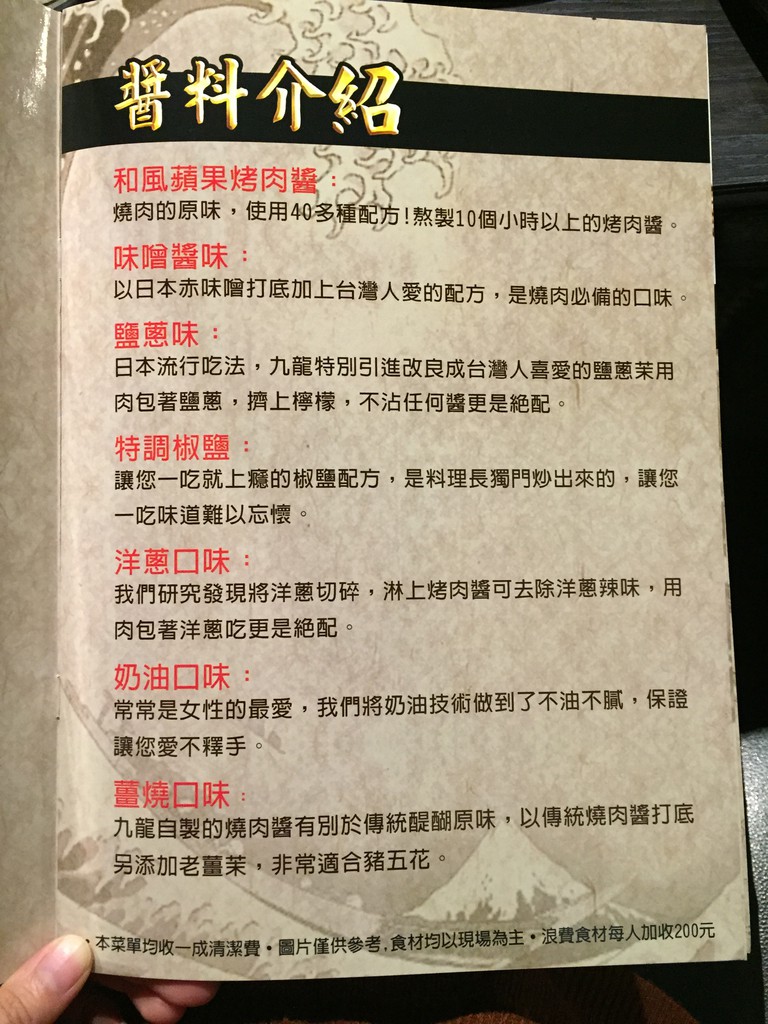 醬料介紹
和風蘋果烤肉醬：
燒肉的原味，使用40多種配方!熬製10個小時以上的烤肉醬。
味噌醬味：
以日本赤味噌打底加上台灣人愛的配方，是燒肉必備的口味。
鹽蔥味：
日本流行吃法，九龍特別引進改良成台灣人喜愛的鹽蔥茉用
肉包著鹽蔥，擠上檸檬，不沾任何醬更是絕配。
特調椒鹽：
讓您一吃就上癮的椒鹽配方，是料理長獨門炒出來的，讓您
一吃味道難以忘懷。
洋蔥口味：
我們研究發現將洋蔥切碎，淋上烤肉醬可去除洋蔥辣味，用
肉包著洋蔥吃更是絕配。
奶油口味：
常常是女性的最愛，我們將奶油技術做到了不油不膩，保證
讓您愛不釋手。
薑燒口味：
九龍自製的燒肉醬有別於傳統醍醐原味，以傳統燒肉醬打底
另添加老薑茉，非常適合豬五花。
•本菜單均收一成清潔費•圖片僅供參考,食材均以現場為主•浪費食材每人加收200元